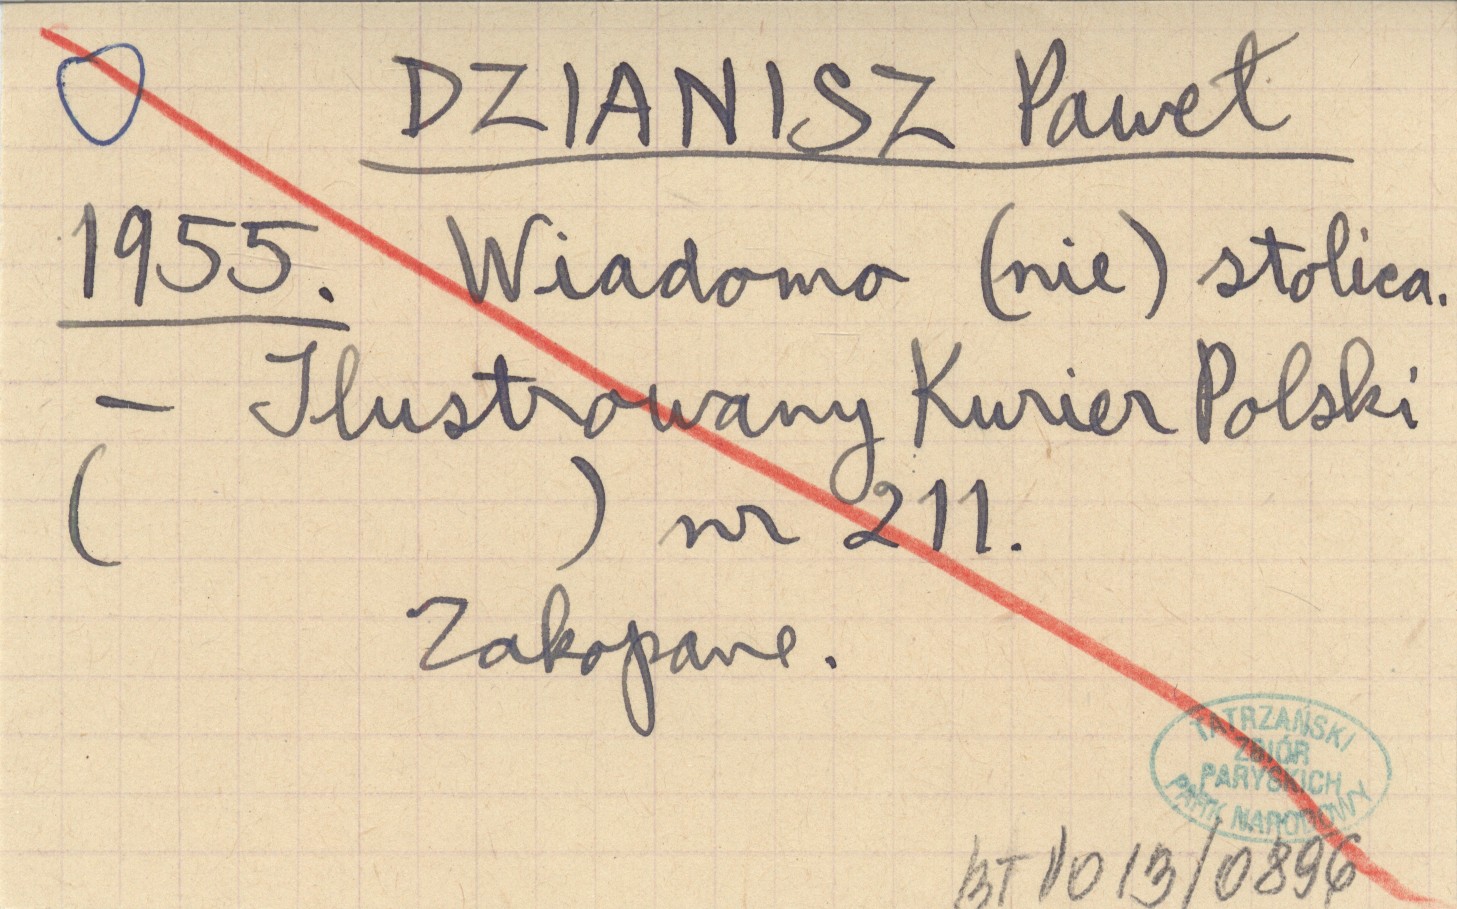 DZIANISZ Paweł
1955. Wiadomo (nie) stolica.
– Ilustrowany Kurier Polski
( ) nr 211.
Zakopane.
TATRZAŃSKI
ZBIÓR
PARYSKICH
PARK NARODOWY
/0896